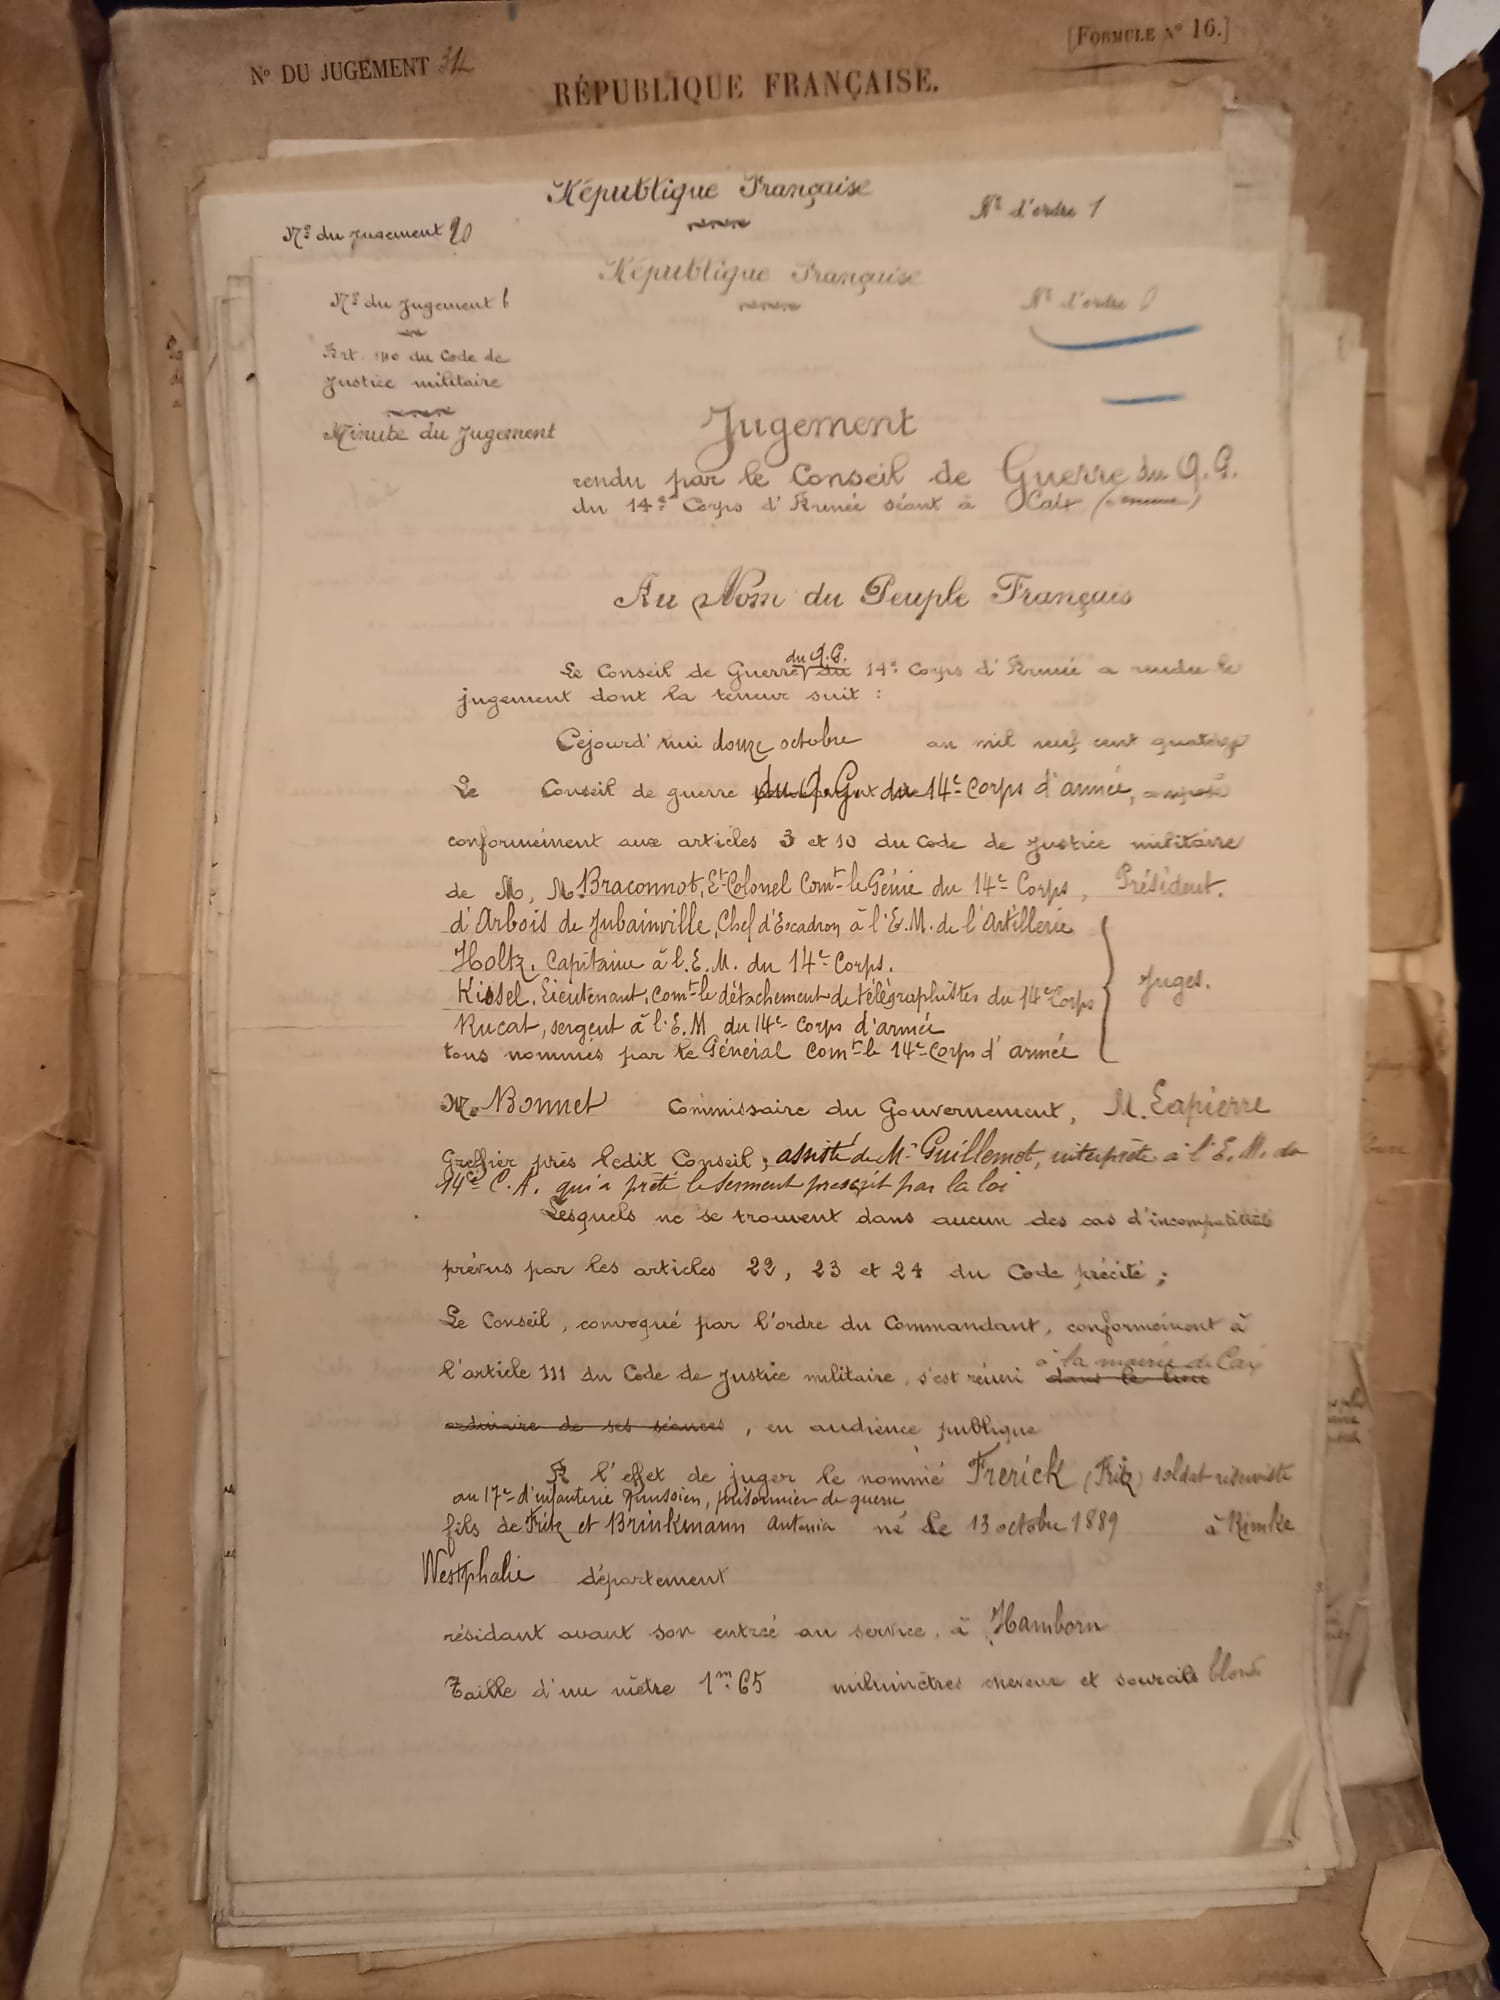 N° DU JUGEMENT 314
[FORMULE N° 16.]
RÉPUBLIQUE FRANÇAISE.
République Française
N° d'ordre 1
N° du jugement 20
République Française
N° du Jugement 6
N° d'ordre
Art. 140 du Code de
Justice militaire
Minute du Jugement
Jugement
rendu par le Conseil de Guerre du Q.G.
du 14e Corps d'Armée séant à Caix
Au Nom du Peuple Français
du Q.G.
Le Conseil de Guerre du 14e Corps d'Armée a rendu le
jugement dont la teneur suit :
Cejourd'hui douze octobre an mil neuf cent quatorze
Le Conseil de guerre du Q.G. du 14e Corps d'armée, composé
conformément aux articles 3 et 10 du Code de Justice militaire
de M, M. Braconnot, Lt Colonel Comt le Génie du 14e Corps, Président.
d'Arbois de Jubainville, Chef d'Escadron à l'E.M. de l'Artillerie
Holtz, Capitaine à l'E.M. du 14e Corps.
Kissel, Lieutenant, comt le détachement de télégraphistes du 14e Corps
Juges.
Rucat, sergent à l'E.M. du 14e Corps d'armée
tous nommés par le Général Comt le 14e Corps d'armée
M. Bonnet Commissaire du Gouvernement, M. Lapierre
Greffier près ledit Conseil ; assisté de Mr Guillemot, interprète à l'E.M. du
14e C.A. qui a prêté le serment prescrit par la loi
Lesquels ne se trouvent dans aucun des cas d'incompatibilité
prévus par les articles 22, 23 et 24 du Code précité ;
Le Conseil, convoqué par l'ordre du Commandant, conformément à
l'article 111 du Code de Justice militaire, s'est réuni dans le lieu
à la mairie de Caix
ordinaire de ses séances, en audience publique
A l'effet de juger le nommé Frerick (Fritz) soldat réserviste
au 17e d'infanterie prussien, prisonnier de guerre
fils de Fritz et Brinkmann Antonia né le 13 octobre 1889 à Rimke
Westphalie département
résidant avant son entrée au service, à Hamborn
Taille d'un mètre 1m.65 millimètres cheveux et sourcils blonds